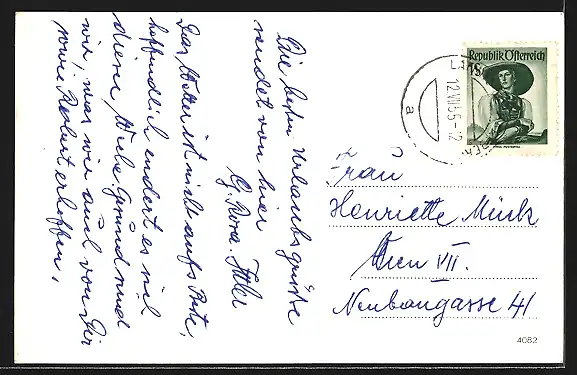 Die besten Urlaubsgrüsse
sendet von hier
Das Wetter ist nicht aufs Beste,
hoffentlich endert es sich
diese Woche. Gesund sind
wir, was wir auch von Dir
sowie Robert erhoffen.
Republik Österreich
12.VIII.55-12
a
Frau
Henriette Münk
Wien VII.
Neubaugasse 41
4082